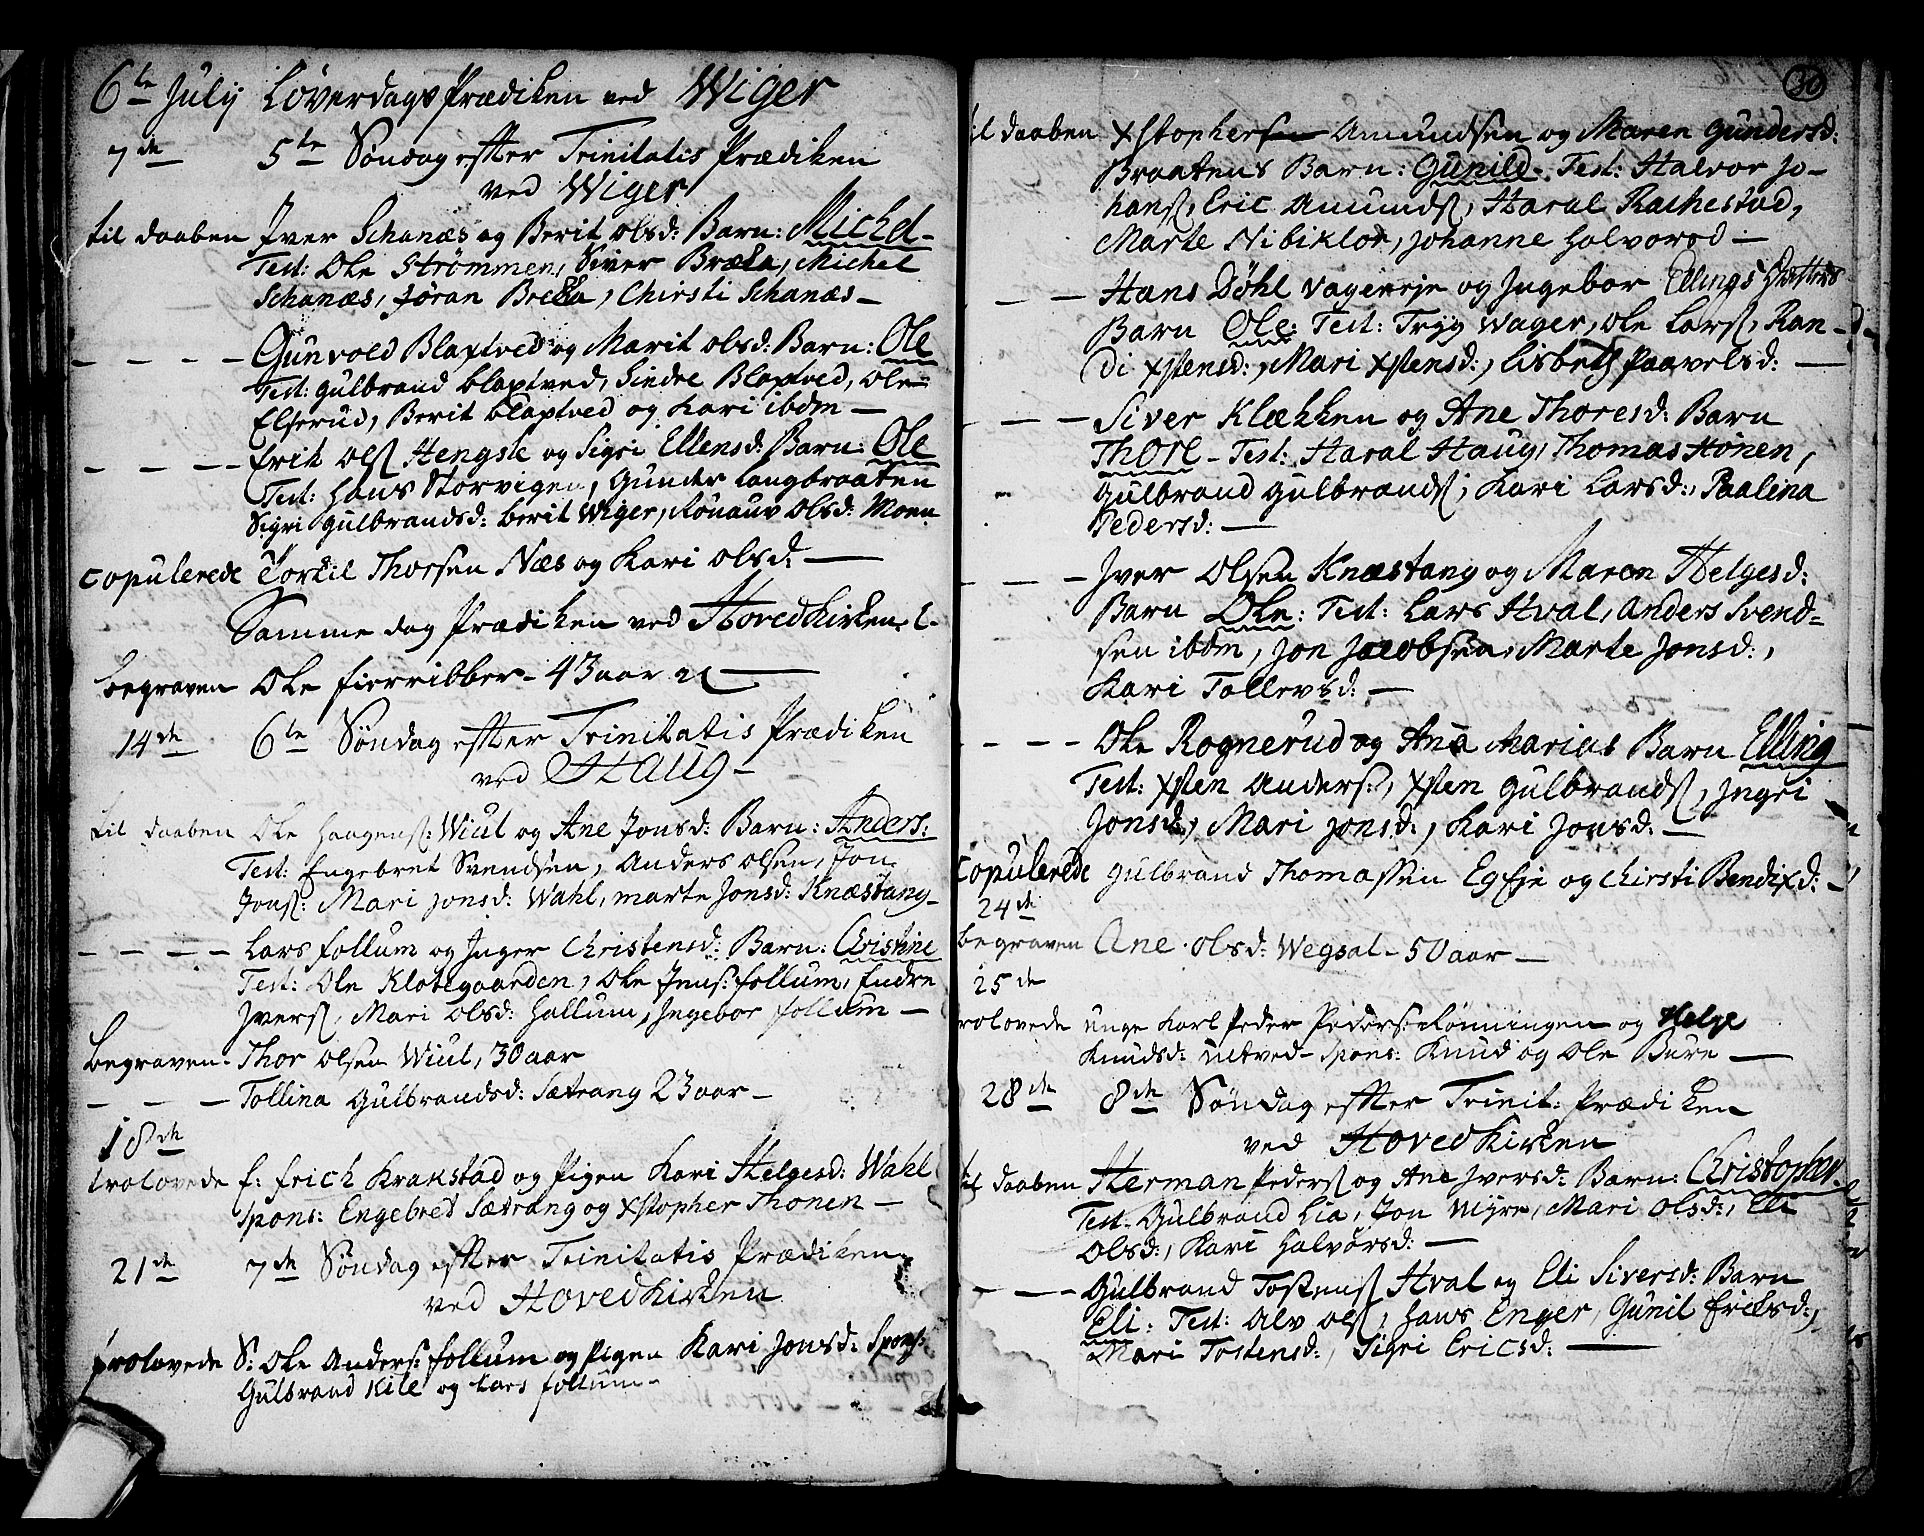 6te July Löverdags Prædiken ved Wiger
7de 5te Søndag efter Trinitatis Prædiken
ved Wiger
til daaben Jver Schanæs og Berit olsd: Barn: Michel-
Test: Ole Strømmen, Siver Bræka, Michel
Schanæs, Jøran Breka, Chirsti Schanæs-
- - - - Gunvold Blaxtved og Marit olsd: Barn: Ole
Test: gulbrand blaxtved, Sindre Blaxtved, ole
Elserud, Berit blaxtved og Kari ibdm -
- - - - Erik olsſ Hengsle og Sigri Ellensd: Barn: Ole
Test: Hans Storvigen, Gunder Langbraaten
Sigri gulbrandsd: berit Wiger, Rönauv Olsd: Moen
Copulerede Torkil Thorsen Næs og Kari olsd: -
Samme dag Prædiken ved Hovedkirken.
begraven Ole fierribber- 43 aar
14de 6te Søndag efter Trinitatis Prædiken
ved Haug-
til daaben Ole Haagensſ: Wiul og Ane Jonsd: Barn: Anders:
Test: Engebret Svendsen, Anders olsen, Jon
Jonsſ: Mari jonsd: Wahl, marte Jonsd: Knæstang-
- - - - Lars follum og Inger Christensd: Barn: Christine
Test: Ole Klotegaarden, Ole Jens: follum, Endre
Jversſ, Mari olsd: Hallum, Jngebor follum -
begraven- Thor olsen Wiul, 30 aar
- - - Tollina Gulbrandsd: Sætrang 23 aar-
18de
trolovede f: frich Krakstad og Pigen Kari Helgesd: Wahl
Spons: Engebret Sætrang og Xstopher Thonen -
21de 7de Søndag efter Trinitatis Prædiken
ved Hovedkirken
trolovede S: Ole Anders: follum og Pigen Kari Jonsd: Spons:
Gulbrand Kile og Lars follum-
30
til daaben Xstopher Amundsen og Maren gundersd:
Braatens Barn: Gunild. Test: Halvor Jo-
hansſ, Eric Amundsſ, Haral Rachestad,
Marte Nibiklor, johanne Halvorsd -
- - Hans Döhl vageneje og Jngebor Ellings Datters
Barn Ole: Test: Tryg Wager, Ole Larsſ, Ran-
di Xstensd:, Mari Xstensd:, Lisbeth Paavelsd: -
- - Siver Klækken og Ane Thoresd: Barn
Thore- Test: Haral Haug, Thomas Hönen,
gulbrand gulbrandsſ, Kari Larsd:, Paalina
Pedersd: -
- - - Jver Olsen Knæstang og Maren Helgesd:
Barn Ole: Test: Lars Hval, Anders Svend=
sen ibdm, Jon Jacobsen, Marte Jonsd:,
Kari Tollevsd: -
- - - Ole Rognerud og Ana Marias Barn Elling
Test: Xsten Anders:, Xsten gulbrandsſ, Jngri
Jonsd:, Mari jonsd:, Kari Jonsd: -
Copulerede gulbrand Thomassen Eg og Chirsti Bendixd: -
24de
begraven Ane olsd: Wegsal- 50 aar -
25de
trolovede unge Karl Peder Peders: Rönningen og Helge
Knudsd: Untved- Spons: Knud og Ole Bure -
28de 8de Söndag efter Trinit: Prædiken
ved Hovedkirken
til daaben Herman Pedersſ og Ane Jversd: Barn: Christopher.
Test- Gulbrand Lia, Jon Myre, Mari Olsd:, Eli
olsd:, Kari Halvorsd: -
- - - Gulbrand Tostensſ Hval og Eli Siversd: Barn
Eli: Test: Alv olsſ, Hans Enger, Gunil Ericksd:,
Mari Tostensd:, Sigri Ericsd: -